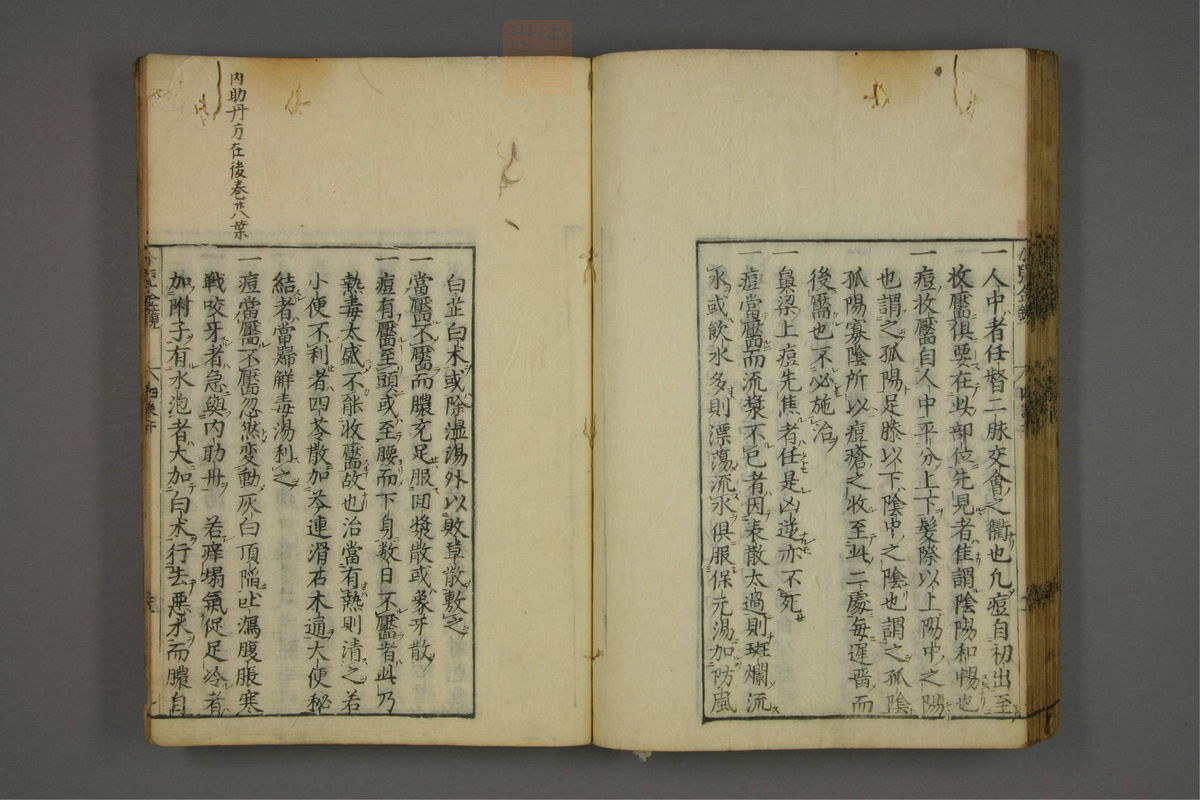 一人中者任督二脉交會之衢也凡痘自初出至
收靨俱要在此部位先見者佳謂陰陽和暢也
一痘收靨自人中平分上下髮際以上陽中之陽
也謂之孤陽足膝以下陰中之陰也謂之孤陰
孤陽寡陰所以痘瘡之收至此二處每遲畱而
後靨也不必施治
一鼻梁上痘先焦者任是凶逆亦不死
一痘當靨而流漿不已者因表散太過則斑爛流
水或飲水多則漂蕩流水俱服保元湯加防風
白芷白朮或除濕湯外以敗草散敷之
一當靨不靨而膿充足服囬漿散或象牙散
一痘有靨至頭或至腰而下身数日不靨者此乃
熱毒太盛不能收靨故也治當有熱則清之若
小便不利者四苓散加芩連滑石木通大便秘
結者當歸解毒湯利之
一痘當靨不靨忽然变動灰白頂陷吐瀉腹脹寒
戰咬牙者急與内助丹 若痒塌氣促足冷者
加附子有水泡者大加白朮行去惡水而膿自
内助丹方在後卷廿八葉